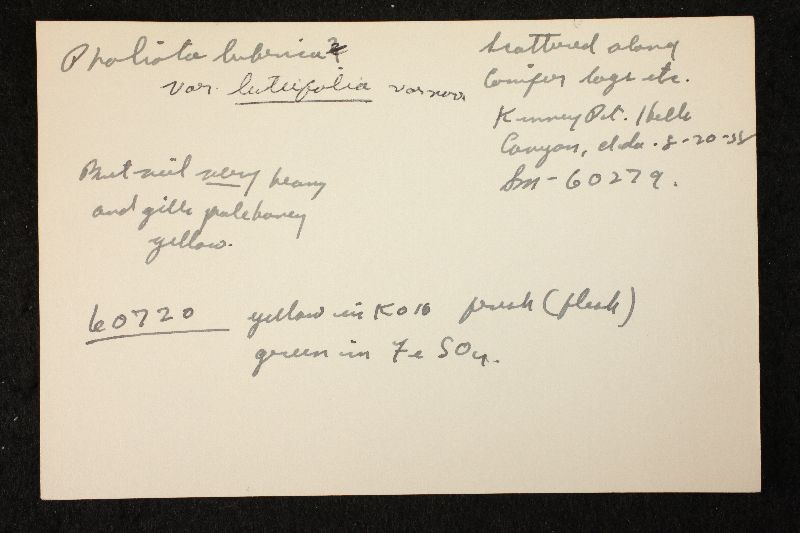 Pholiota lubrica?
var. luteifolia var nov
But veil very heavy
and gills pale honey
yellow.
Scattered along
Conifer logs etc.
Kinney Pt. Hells
Canyon, Ida. 8-20-58
Sm-60279.
60720 yellow in KOH fresh (flesh)
green in FeSO4.